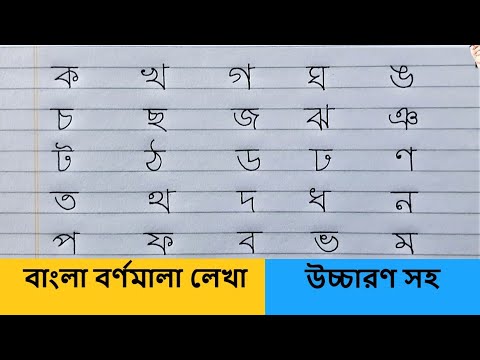 ক খ গ ঘ ঙ
চ ছ জ ঝ ঞ
ট ঠ ড ঢ ণ
ত থ দ ধ ন
প ফ ব ভ ম
বাংলা বর্ণমালা লেখা উচ্চারণ সহ